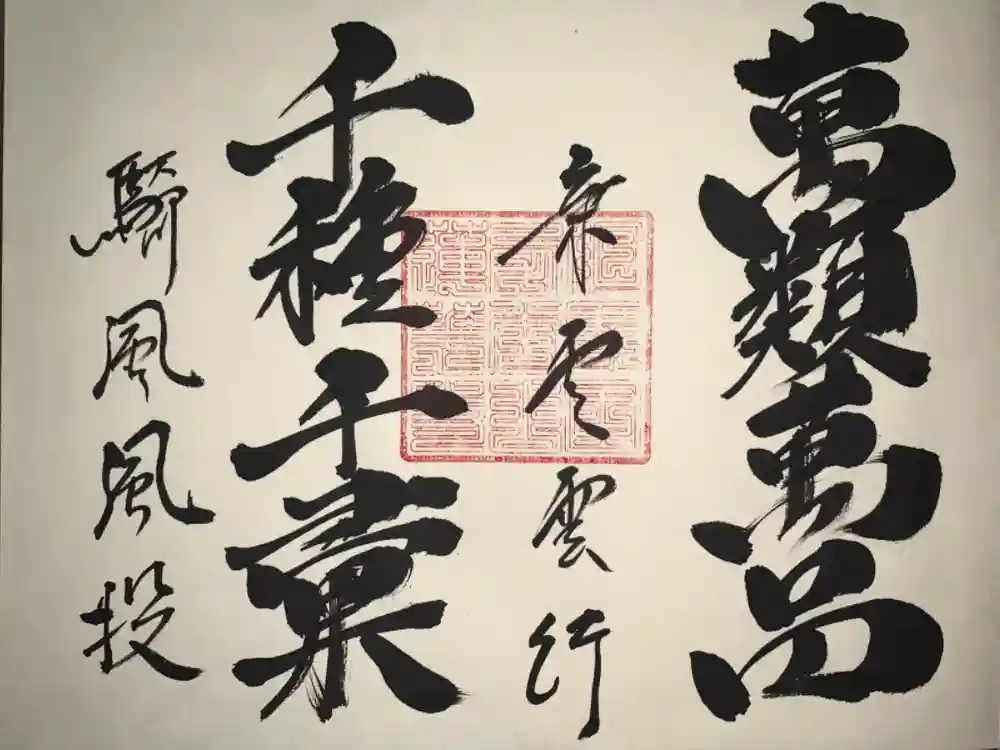 萬類萬品
乗雲雲行
千種千葉
騎風風投